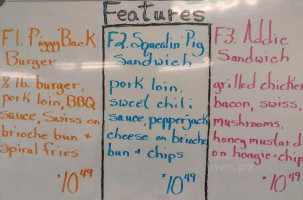 Features
F1. Piggy Back
Burger
½ lb. burger,
pork loin, BBQ
sauce, Swiss on
brioche bun +
spiral fries
$10.49
F2. Squealin' Pig
Sandwich
pork loin,
sweet chili
sauce, pepperjack
cheese on brioche
bun + chips
$10.49
F3. Addie
Sandwich
grilled chicken
bacon, swiss,
mushrooms,
honey mustard
on hoagie + chips
$10.49